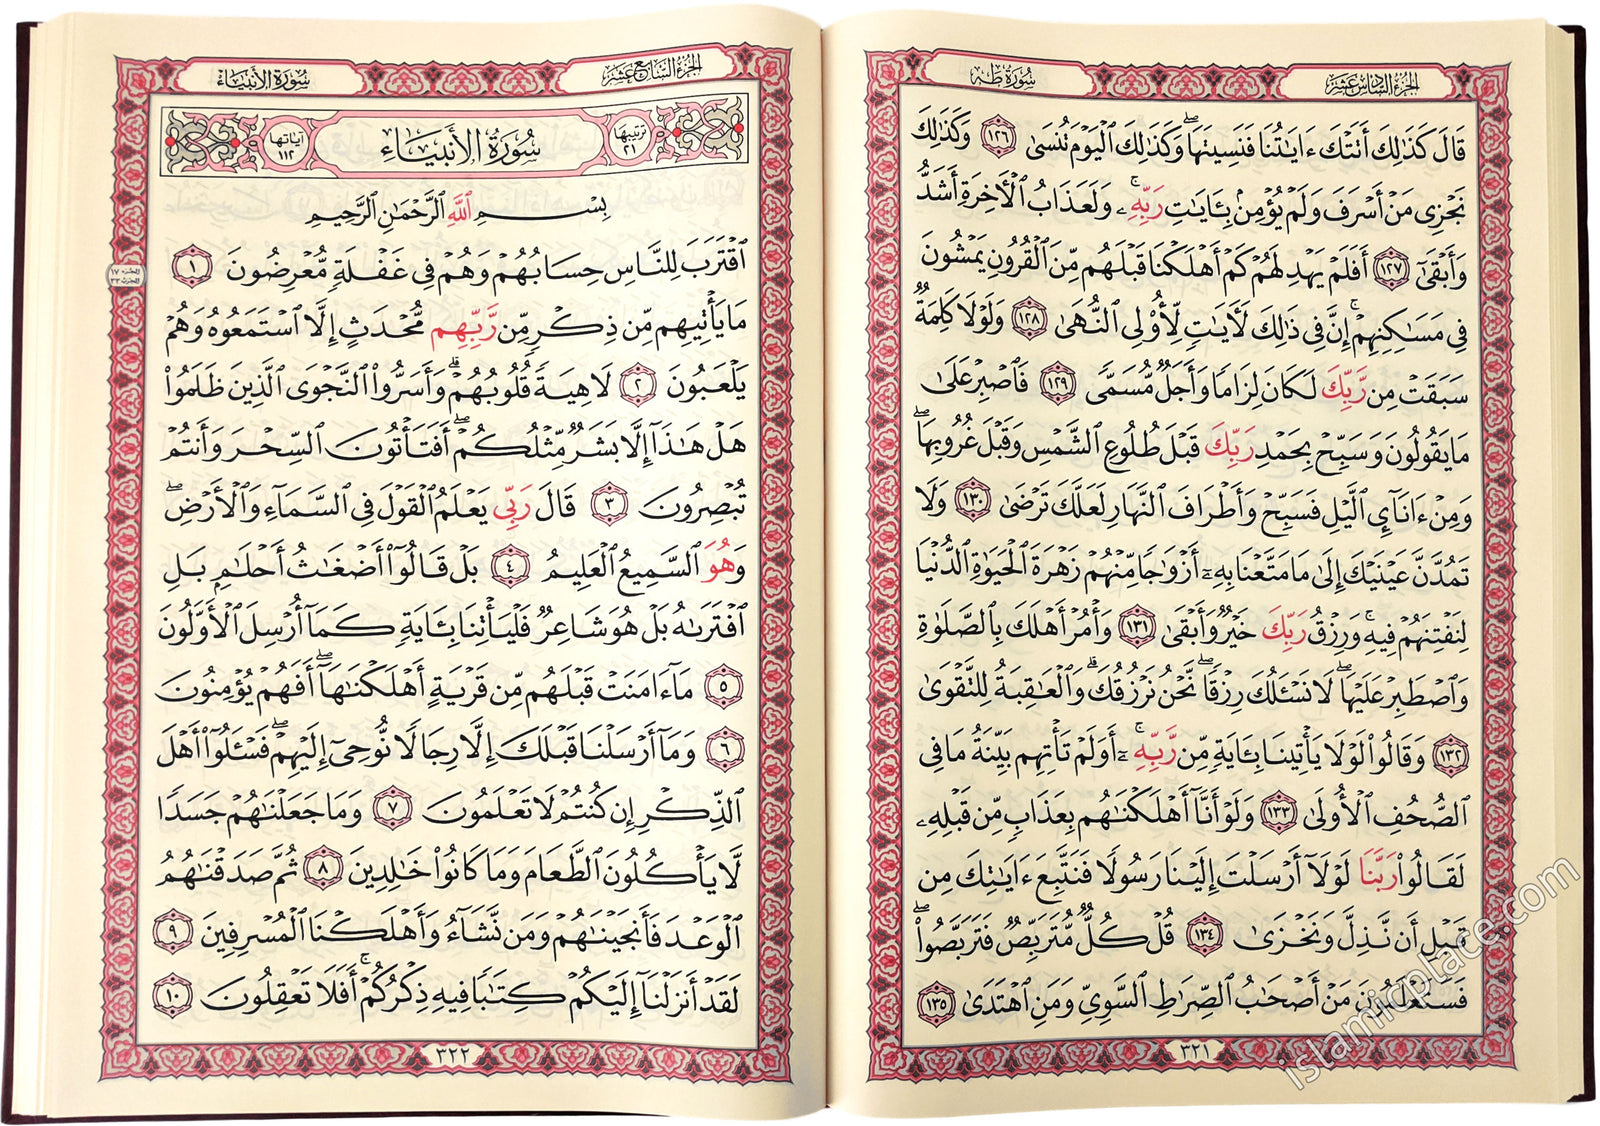 الجزء السادس عشر
سورة طه
قَالَ كَذَٰلِكَ أَتَتْكَ ءَايَٰتُنَا فَنَسِيتَهَا ۖ وَكَذَٰلِكَ ٱلْيَوْمَ تُنسَىٰ ١٢٦ وَكَذَٰلِكَ
نَجْزِى مَنْ أَسْرَفَ وَلَمْ يُؤْمِنۢ بِـَٔايَٰتِ رَبِّهِۦ ۚ وَلَعَذَابُ ٱلْأَخِرَةِ أَشَدُّ
وَأَبْقَىٰٓ ١٢٧ أَفَلَمْ يَهْدِ لَهُمْ كَمْ أَهْلَكْنَا قَبْلَهُم مِّنَ ٱلْقُرُونِ يَمْشُونَ
فِى مَسَٰكِنِهِمْ ۗ إِنَّ فِى ذَٰلِكَ لَأَيَٰتٍ لِّأُو۟لِى ٱلنُّهَىٰ ١٢٨ وَلَوْلَا كَلِمَةٌ
سَبَقَتْ مِن رَّبِّكَ لَكَانَ لِزَامًا وَأَجَلٌ مُّسَمًّى ١٢٩ فَٱصْبِرْ عَلَىٰ
مَا يَقُولُونَ وَسَبِّحْ بِحَمْدِ رَبِّكَ قَبْلَ طُلُوعِ ٱلشَّمْسِ وَقَبْلَ غُرُوبِهَا ۖ
وَمِنْ ءَانَآئِ ٱلَّيْلِ فَسَبِّحْ وَأَطْرَافَ ٱلنَّهَارِ لَعَلَّكَ تَرْضَىٰ ١٣٠ وَلَا
تَمُدَّنَّ عَيْنَيْكَ إِلَىٰ مَا مَتَّعْنَا بِهِۦٓ أَزْوَٰجًا مِّنْهُمْ زَهْرَةَ ٱلْحَيَوٰةِ ٱلدُّنْيَا
لِنَفْتِنَهُمْ فِيهِ ۚ وَرِزْقُ رَبِّكَ خَيْرٌ وَأَبْقَىٰ ١٣١ وَأْمُرْ أَهْلَكَ بِٱلصَّلَوٰةِ
وَٱصْطَبِرْ عَلَيْهَا ۖ لَا نَسْـَٔلُكَ رِزْقًا ۖ نَّحْنُ نَرْزُقُكَ ۗ وَٱلْعَٰقِبَةُ لِلتَّقْوَىٰ
١٣٢ وَقَالُوا۟ لَوْلَا يَأْتِينَا بِـَٔايَةٍ مِّن رَّبِّهِۦٓ ۚ أَوَلَمْ تَأْتِهِم بَيِّنَةُ مَا فِى
ٱلصُّحُفِ ٱلْأُولَىٰ ١٣٣ وَلَوْ أَنَّآ أَهْلَكْنَٰهُم بِعَذَابٍ مِّن قَبْلِهِۦ
لَقَالُوا۟ رَبَّنَا لَوْلَآ أَرْسَلْتَ إِلَيْنَا رَسُولًا فَنَتَّبِعَ ءَايَٰتِكَ مِن
قَبْلِ أَن نَّذِلَّ وَنَخْزَىٰ ١٣٤ قُلْ كُلٌّ مُّتَرَبِّصٌ فَتَرَبَّصُوا۟ ۖ
فَسَتَعْلَمُونَ مَنْ أَصْحَٰبُ ٱلصِّرَٰطِ ٱلسَّوِىِّ وَمَنِ ٱهْتَدَىٰ ١٣٥
٣٢١
الجزء السابع عشر
سورة الأنبياء
ترتيبها ٢١
سورة الأنبياء
آياتها ١١٢
بِسْمِ ٱللَّهِ ٱلرَّحْمَٰنِ ٱلرَّحِيمِ
ٱقْتَرَبَ لِلنَّاسِ حِسَابُهُمْ وَهُمْ فِى غَفْلَةٍ مُّعْرِضُونَ ١
الجزء ١٧
الحزب ٣٣
مَا يَأْتِيهِم مِّن ذِكْرٍ مِّن رَّبِّهِم مُّحْدَثٍ إِلَّا ٱسْتَمَعُوهُ وَهُمْ
يَلْعَبُونَ ٢ لَاهِيَةً قُلُوبُهُمْ ۗ وَأَسَرُّوا۟ ٱلنَّجْوَى ٱلَّذِينَ ظَلَمُوا۟
هَلْ هَٰذَآ إِلَّا بَشَرٌ مِّثْلُكُمْ ۖ أَفَتَأْتُونَ ٱلسِّحْرَ وَأَنتُمْ
تُبْصِرُونَ ٣ قَالَ رَبِّى يَعْلَمُ ٱلْقَوْلَ فِى ٱلسَّمَآءِ وَٱلْأَرْضِ ۖ
وَهُوَ ٱلسَّمِيعُ ٱلْعَلِيمُ ٤ بَلْ قَالُوٓا۟ أَضْغَٰثُ أَحْلَٰمٍۭ بَلِ
ٱفْتَرَىٰهُ بَلْ هُوَ شَاعِرٌ فَلْيَأْتِنَا بِـَٔايَةٍ كَمَآ أُرْسِلَ ٱلْأَوَّلُونَ
٥ مَآ ءَامَنَتْ قَبْلَهُم مِّن قَرْيَةٍ أَهْلَكْنَٰهَآ ۖ أَفَهُمْ يُؤْمِنُونَ
٦ وَمَآ أَرْسَلْنَا قَبْلَكَ إِلَّا رِجَالًا نُّوحِىٓ إِلَيْهِمْ ۖ فَسْـَٔلُوٓا۟ أَهْلَ
ٱلذِّكْرِ إِن كُنتُمْ لَا تَعْلَمُونَ ٧ وَمَا جَعَلْنَٰهُمْ جَسَدًا
لَّا يَأْكُلُونَ ٱلطَّعَامَ وَمَا كَانُوا۟ خَٰلِدِينَ ٨ ثُمَّ صَدَقْنَٰهُمُ
ٱلْوَعْدَ فَأَنجَيْنَٰهُمْ وَمَن نَّشَآءُ وَأَهْلَكْنَا ٱلْمُسْرِفِينَ ٩
لَقَدْ أَنزَلْنَآ إِلَيْكُمْ كِتَٰبًا فِيهِ ذِكْرُكُمْ ۖ أَفَلَا تَعْقِلُونَ ١٠
٣٢٢
islamicplace.com